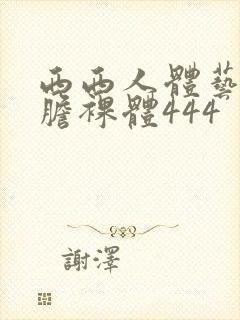 西西人體藝
膽裸體444
謝澤